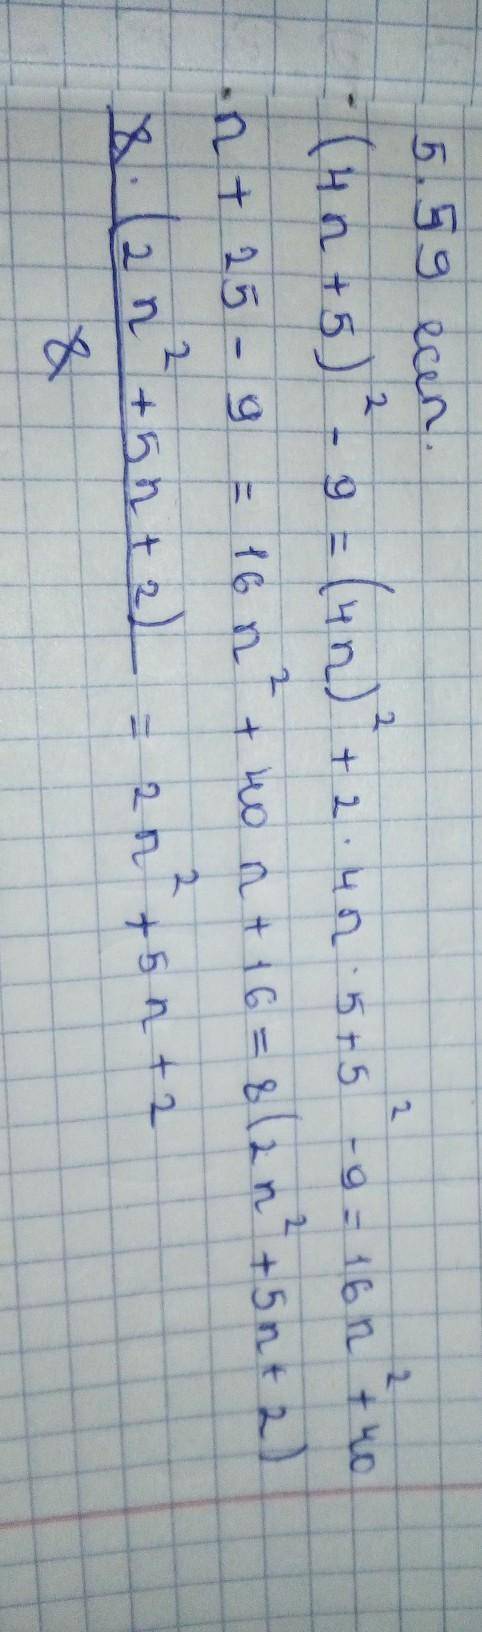 5.59 есеп.
(4n+5)² - 9 = (4n)² + 2·4n·5+5² - 9 = 16n² + 40
·n + 25 - 9 = 16n² + 40n + 16 = 8(2n² + 5n + 2)
8·(2n² + 5n + 2) = 2n² + 5n + 2
8